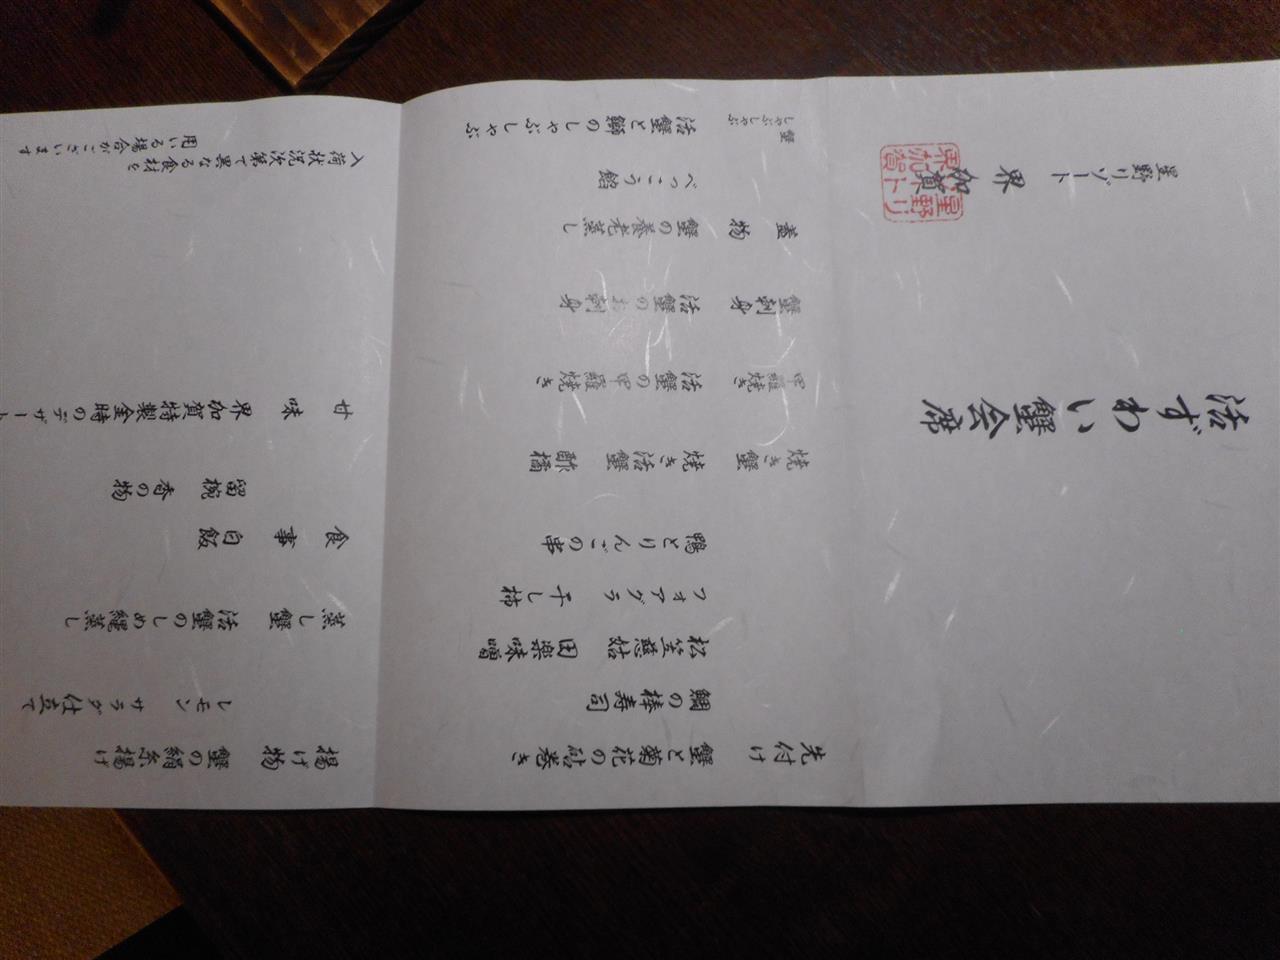 活ずわい蟹会席
星野リゾート
界 加賀
先付け 蟹と菊花の砧巻き
鯛の棒寿司
松笠慈姑 田楽味噌
フォアグラ 干し柿
鴨とりんごの串
焼き蟹 焼き活蟹 酢橘
甲羅焼き 活蟹の甲羅焼き
蟹刺身 活蟹のお刺身
蓋物 蟹の養老蒸し
べっこう餡
蟹しゃぶしゃぶ 活蟹と鰤のしゃぶしゃぶ
揚げ物 蟹の絹糸揚げ
レモン サラダ仕立て
蒸し蟹 活蟹のしめ縄蒸し
食事 白飯
留椀 香の物
甘味 界加賀特製金時のデザート
入荷状況次第で異なる食材を
用いる場合がございます